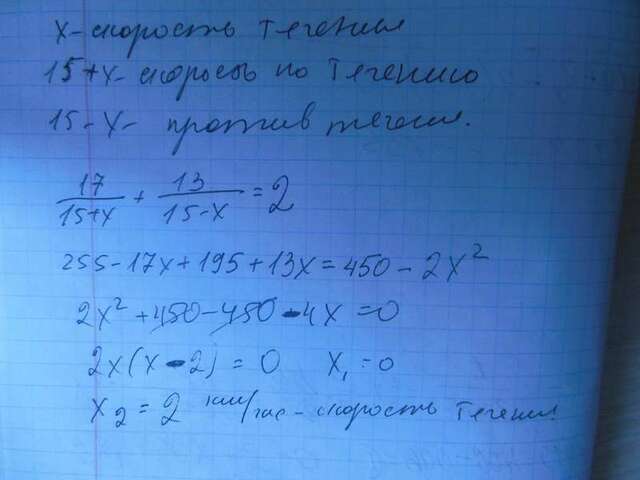 x - скорость течения
15+x - скорось по течению
15-x - против течения.
17/(15+x) + 13/(15-x) = 2
255-17x+195+13x=450-2x²
2x²+450-450-4x=0
2x(x-2)=0 x₁=0
x₂=2 км/час - скорость течения